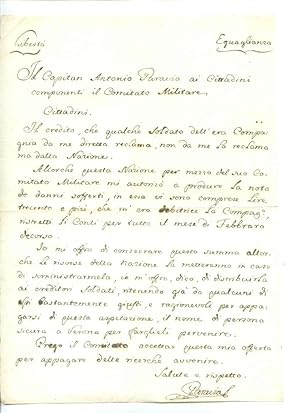 Libertà Eguaglianza
Il Capitan Antonio Paravia ai Cittadini
componenti il Comitato Militare.
Cittadini.
Il credito, che qualche Soldato dell'era Compa-
gnia da me diretta reclama, non da me la reclama
ma dalla Nazione.
Allorchè questa Nazione per mezzo del suo Co-
mitato Militare mi autorizò a produr la nota
de danni sofferti, in essa vi sono comprese Lire
trecento e più, che m'era debitrice la Compag.
ristretti li Conti per tutto il mese di Febbraro
decorso.
Io mi offro di consecrare questa summa allor-
chè le risorse della Nazione la metteranno in caso
di somministrarmela, io m'offro, dico, di distribuirla
ai creditori Soldati, ritenendo già da qualcuni di
essi bastantemente giusti e ragionevoli per appa-
garsi di questa aspettazione, il nome di persona
sicura a Verona per farglieli pervenire.
Prego il Comitato accettar questa mia offerta
per appagare delle ricerche avvenire.
Salute e rispetto.
Paravia